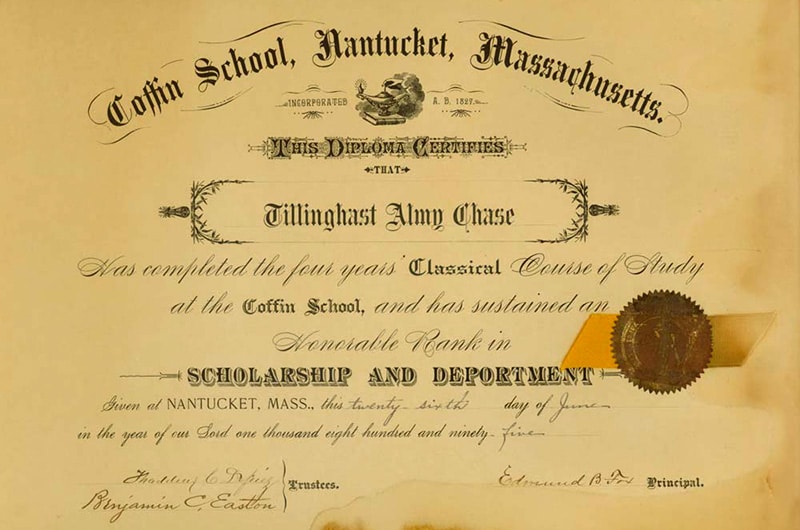 Coffin School, Nantucket, Massachusetts.
INCORPORATED A. D. 1827.
THIS DIPLOMA CERTIFIES
THAT
Tillinghast Almy Chase
Has completed the four years' Classical Course of Study
at the Coffin School, and has sustained an
Honorable Rank in
SCHOLARSHIP AND DEPORTMENT
Given at NANTUCKET, MASS., this twenty sixth day of June
in the year of our Lord one thousand eight hundred and ninety-five
C. Trustees. Edmund B. Fox Principal.
Benjamin C. Easton